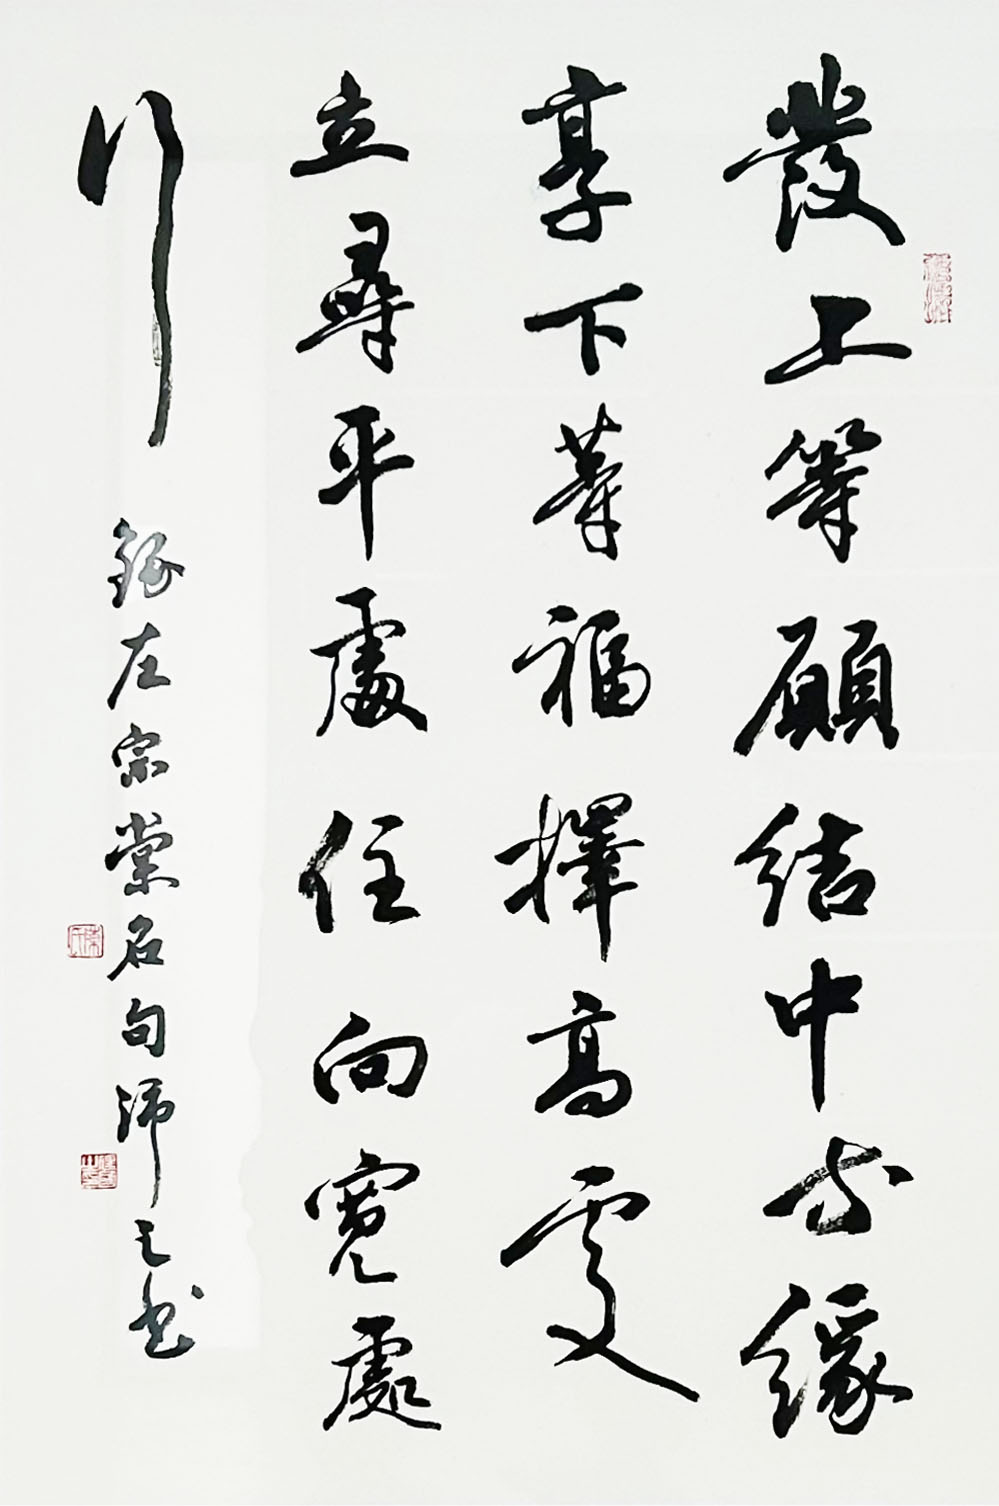 發上等願結中等緣
享下等福擇高處
立尋平處住向寬處
行
錄左宗棠名句師之书